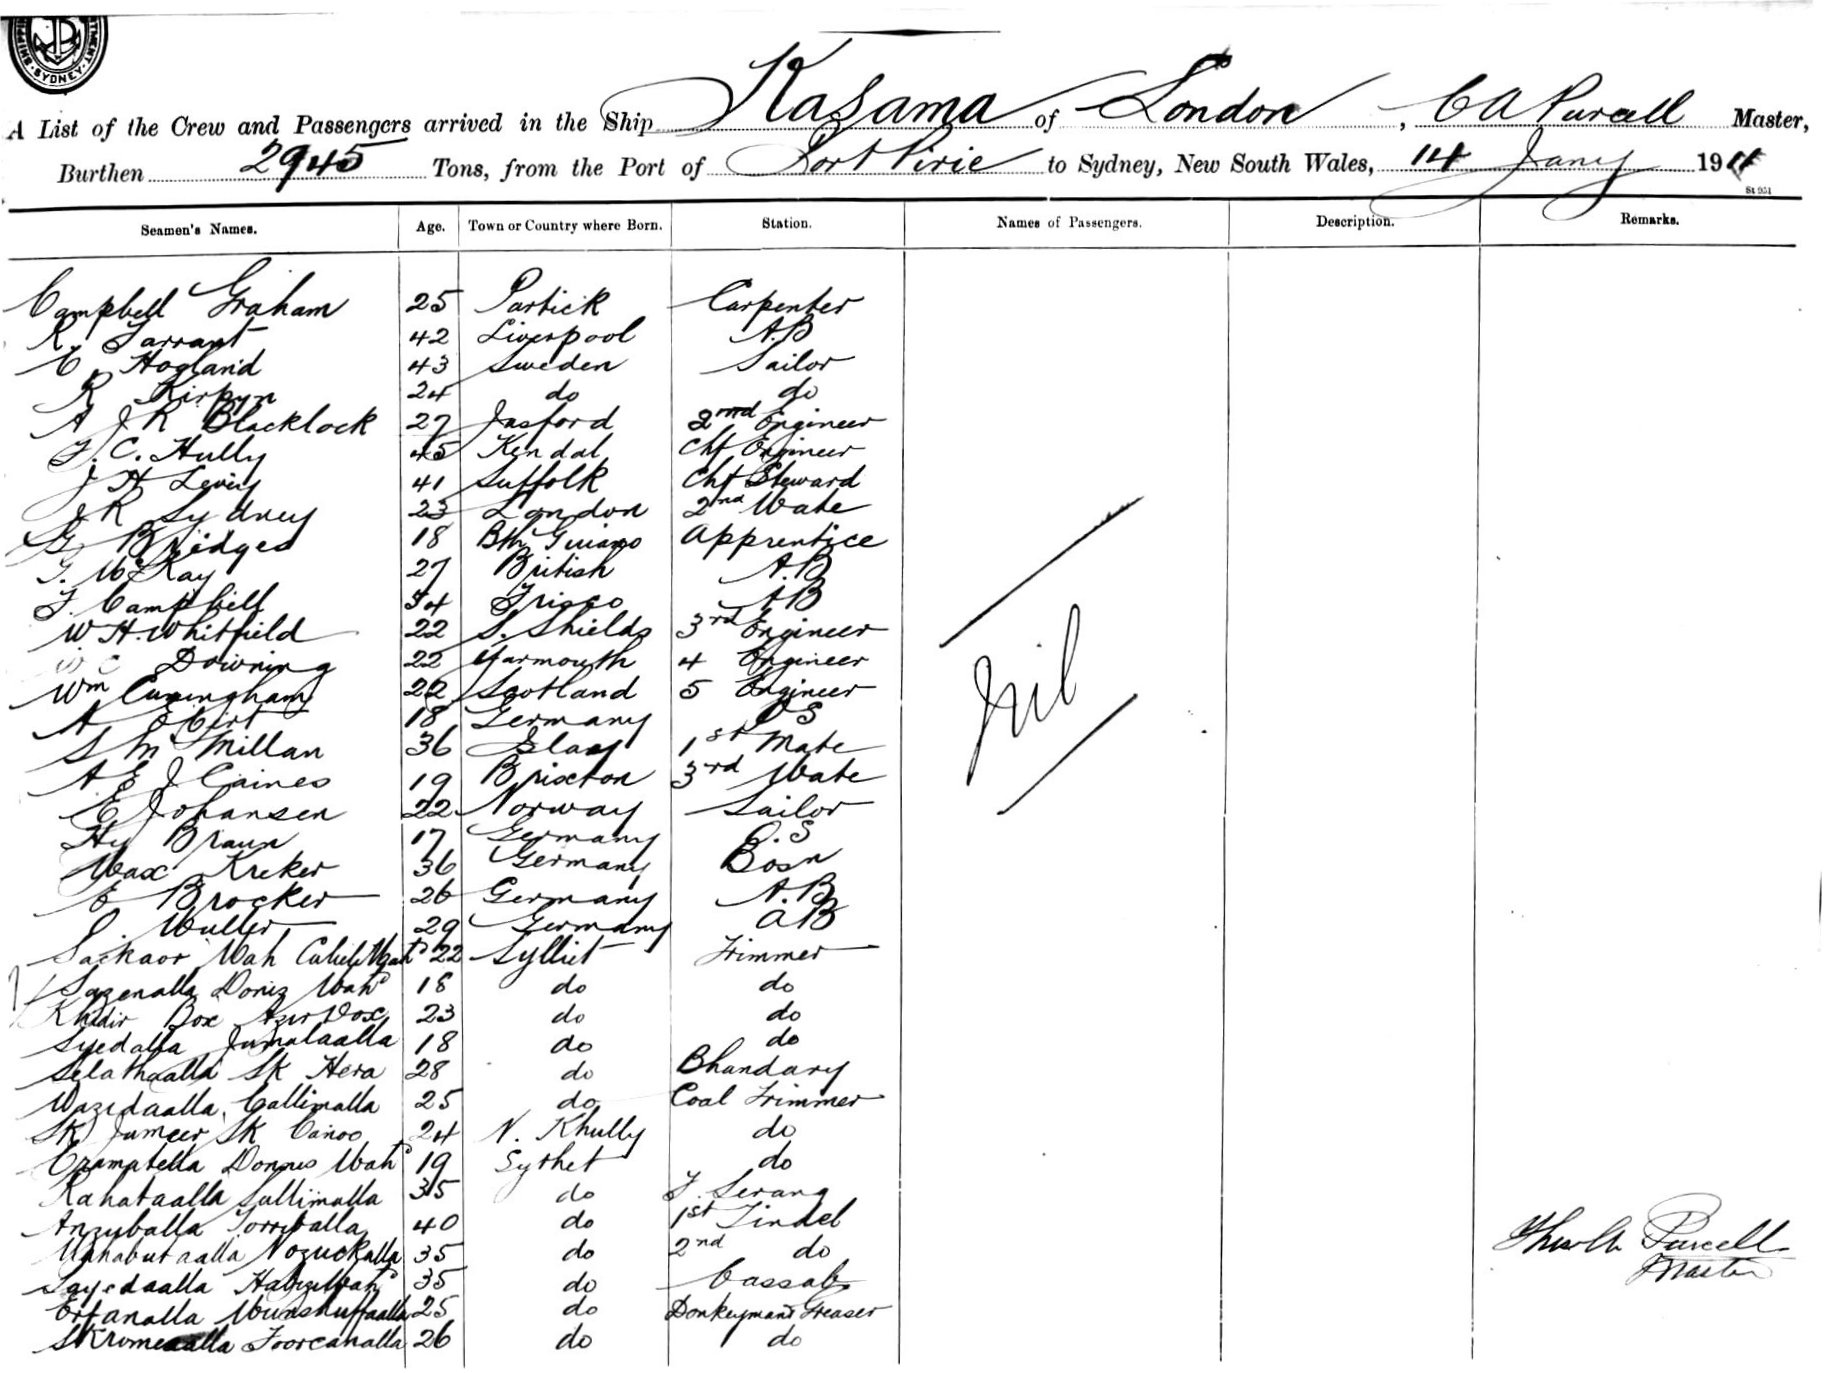 SHIPPING SYDNEY
A List of the Crew and Passengers arrived in the Ship Kasama of London, C A Purcell Master,
Burthen 2945 Tons, from the Port of Port Pirie to Sydney, New South Wales, 14 Jany 1911
St 951
Seamen's Names. Age. Town or Country where Born. Station. Names of Passengers. Description. Remarks.
Campbell Graham 25 Partick Carpenter
R. Tarrant 42 Liverpool A.B
C. Hogland 43 Sweden Sailor
R 24 do do
A J R Blacklock 27 Jasford 2nd Engineer
F. C. Hully 45 Kendal Chf Engineer
J H Levey 41 Suffolk Chf Steward
J R Sydney 23 London 2nd Mate
G Bridges 18 Bth Guiano Apprentice
G. McKay 27 British A.B
F. Campbell 34 Frisco AB
W H. Whitfield 22 S. Shields 3rd Engineer
W C Downing 22 Yarmouth 4 Engineer
Wm Cuningham 22 Scotland 5 Engineer
A Ebert 18 Germany O S
S McMillan 36 Glasg 1st Mate
A E J Caines 19 Brixton 3rd Mate
E Johansen 22 Norway Sailor
Hy Braun 17 Germany O.S
Max Kreker 36 Germany Bosn
E Brocker 26 Germany A.B
O. Muller 29 Germany AB
Sarkaor Mah 22 Sylhet Trimmer
Sazenalla Doriz Mahd 18 do do
Khidir Box Azir Box 23 do do
Syedalla Jumalaalla 18 do do
Selamaalla Sk Hera 28 do Bhandary
Wazidaalla Callimalla 25 do Coal Trimmer
Sk Jumeer Sk Canoo 24 N. Khully do
Cramatella Donnus Mahd 19 Sythet do
Rahataalla Sallimalla 35 do F. Serang
Anzuballa Torriballa 40 do 1st Tindel
Mahabutaalla Nozuckalla 35 do 2nd do
Sayedaalla 35 do Cassab
Erfanalla Munshuffaalla 25 do Donkeyman & Greaser
Skromeaalla Foorcanalla 26 do do
Nil
Purcell
Master